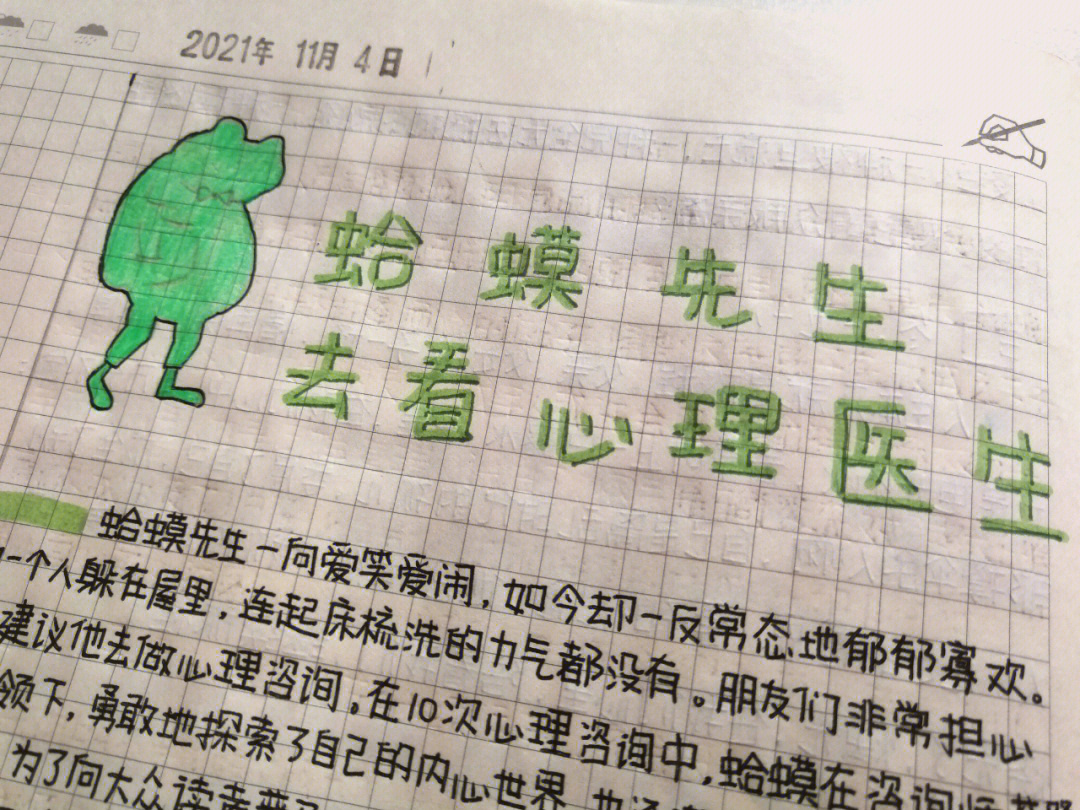 2021年 11月 4日
蛤蟆先生
去看心理医生
蛤蟆先生一向爱笑爱闹，如今却一反常态地郁郁寡欢。
一个人躲在屋里，连起床梳洗的力气都没有。朋友们非常担心
建议他去做心理咨询。在10次心理咨询中，蛤蟆在咨询
领下，勇敢地探索了自己的内心世界
为了向大众读